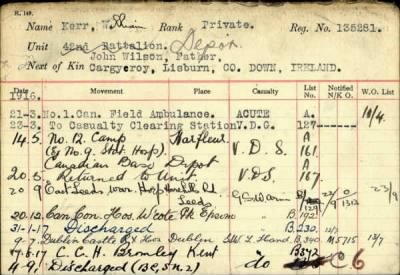 R. 149.
Name Kerr, William Rank Private. Reg. No. 135281.
Unit 42nd Battalion. Depot
John Wilson, Father,
Next of Kin Cargycroy, Lisburn, CO. DOWN, IRELAND.
Date Movement Place Casualty List No. Notified N/K O. W.O. List
1916.
21-3. No.1. Can. Field Ambulance. ACUTE A. 10/4
23-3. To Casualty Clearing Station V.D.G. 127
14.5. No. 12. Camp Harfleur A
(Ex No. 9 Stat. Hosp). V.D.S. 161.
Canadian Base Depot A
20.5 Returned to Unit V.D.S. 167.
20.9 East Leeds War. Hosp Leeds G.S.W. Arm 22/9 23/9
20.12. Can. Con. Hos. Wcote Pk Epsom B.192.
31-1-17 Discharged B.230.
9-7. Dublin Castle Hos Dublin Hand. B.340 M5715 13/7
16.7 C.C.H. Bromley Kent do C6
4-9. Discharged